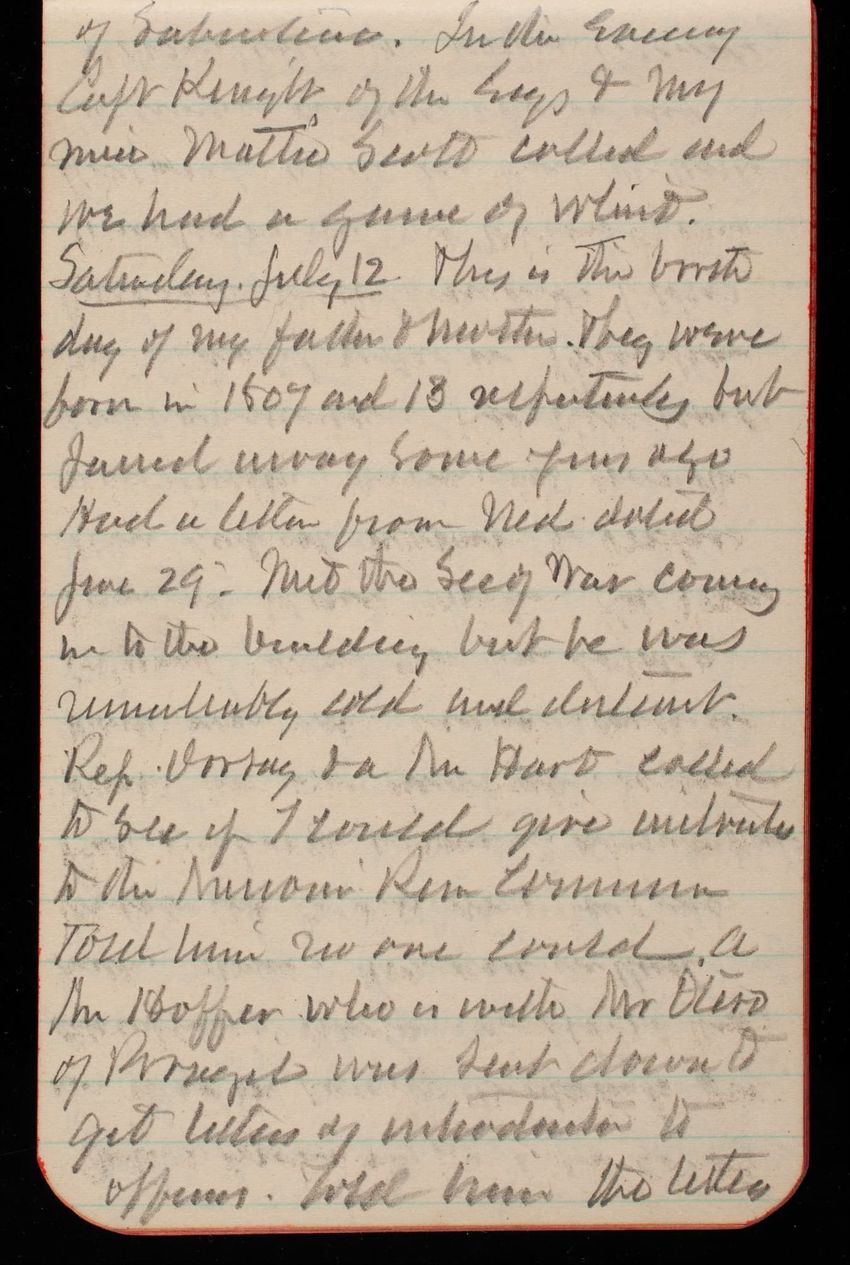 of Subsistence. In the evening
Capt Knight of the Engs & my
niece Mattie Scott called and
we had a game of whist.
Saturday. July 12 This is the birth
day of my father & mother. They were
born in 1807 and 13 respectively but
passed away some years ago
Had a letter from Ned dated
June 29. Met the Sec of War coming
in to the building but he was
remarkably cold and distant.
Rep. & a Mr Hart called
to see if I could give
to the Missouri River Commission
Told him no one could. A
Mr Hoffer who is with Mr Otero
of was sent down to
get letters of introduction to
officers. Told him the letter